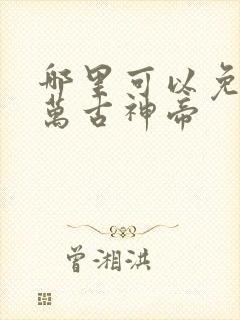 哪里可以免
萬古神帝
曾湘洪